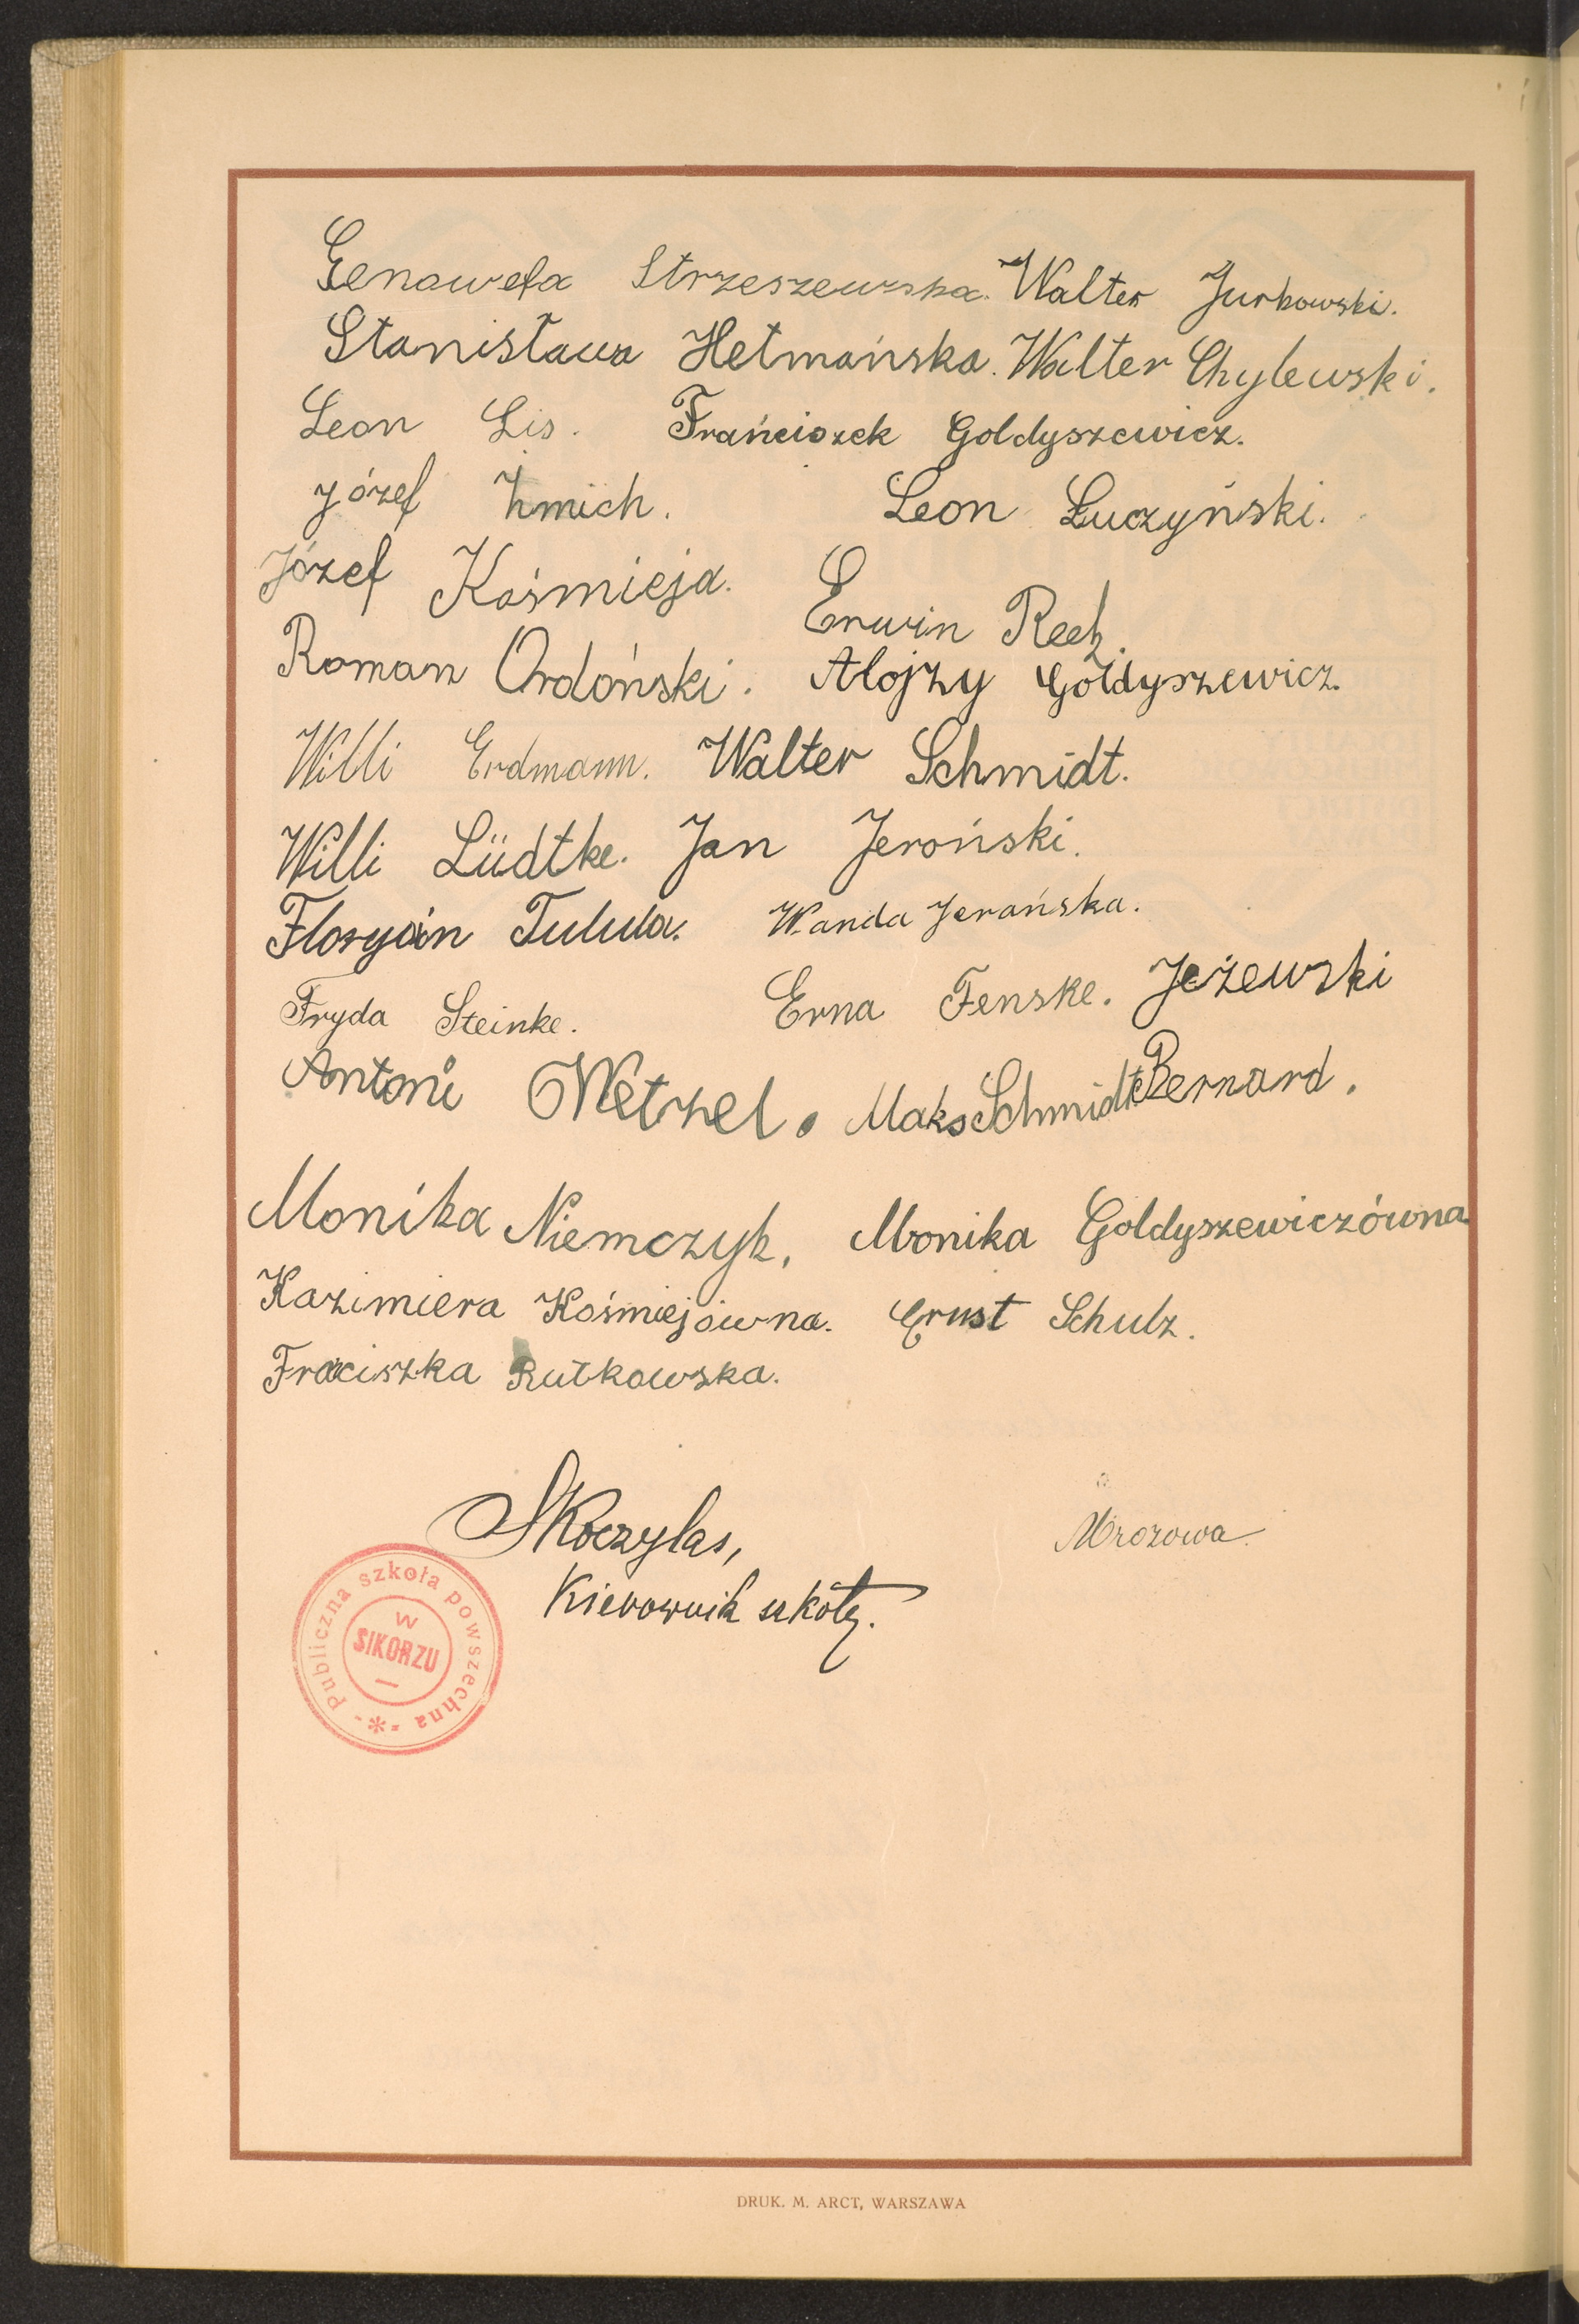 Genowefa Strzeszewska. Walter Jurkowski.
Stanisława Hetmańska. Walter Chylewski.
Leon Lis. Frańciszek Goldyszewicz.
Józef Żmich. Leon Łuczyński.
Józef Kośmieja. Erwin Rech.
Roman Ordoński. Alojzy Gołdyszewicz.
Willi Erdmann. Walter Schmidt.
Willi Lüdtke. Jan Jeroński.
Floryan Tulula. Wanda Jerańska.
Fryda Steinke. Erna Fenske. Jeżewski
Antoni Wetzel. Maks Schmidt. Bernard.
Monika Niemczyk, Monika Goldyszewiczówna
Kazimiera Kośmiejówna. Ernst Schulz.
Fraciszka Rutkowska.
SKoczylas, Mrozowa.
Kierownik szkoły.
Publiczna szkoła powszechna
w
SIKORZU
DRUK. M. ARCT, WARSZAWA